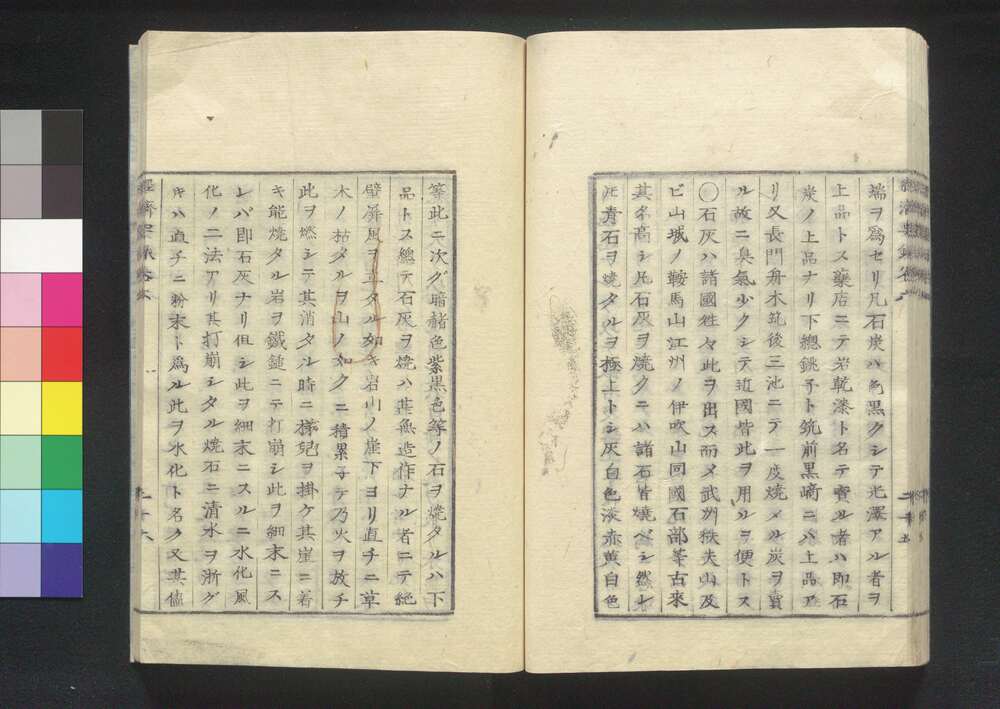 端ヲ爲セリ凡石炭ハ色黒クシテ光澤アル者ヲ
上品トス藥店ニテ岩乾漆ト名テ賣ル者ハ即石
炭ノ上品ナリ下總銚子ト筑前黒﨑ニハ上品ア
リ又長門舟木筑後三池ニテ一度燒メル炭ヲ賣
ル故ニ臭氣少クシテ近國皆此ヲ用ルヲ便トス
〇石灰ハ諸國徃々此ヲ出ス而メ武州秩夫山及
ビ山城ノ鞍馬山江州ノ伊吹山同國石部等古來
其名高シ凡石灰ヲ燒クニハ諸石皆燒ベシ然レ
𪜈青石ヲ燒タルヲ極上トシ灰白色淡赤黄白色
等此ニ次グ暗赭色紫黒色等ノ石ヲ燒タルハ下
品トス總テ石灰ヲ燒ハ其魚造作ナル者ニテ絶
壁屏風ヲ立タル如キ岩山ノ崖下ヨリ直チニ草
木ノ枯タルヲ山ノ如クニ積累子テ乃火ヲ放チ
此ヲ燃シテ其消タル時ニ梯兒ヲ掛ケ其崖ニ着
キ能燒タル岩ヲ鐵鎚ニテ打崩シ此ヲ細末ニス
レバ即石灰ナリ但シ此ヲ細末ニスルニ水化風
化ノ二法アリ其打崩シタル燒石ニ清水ヲ淅グ
キハ直チニ粉末ト爲ル此ヲ水化ト名ク又其儘